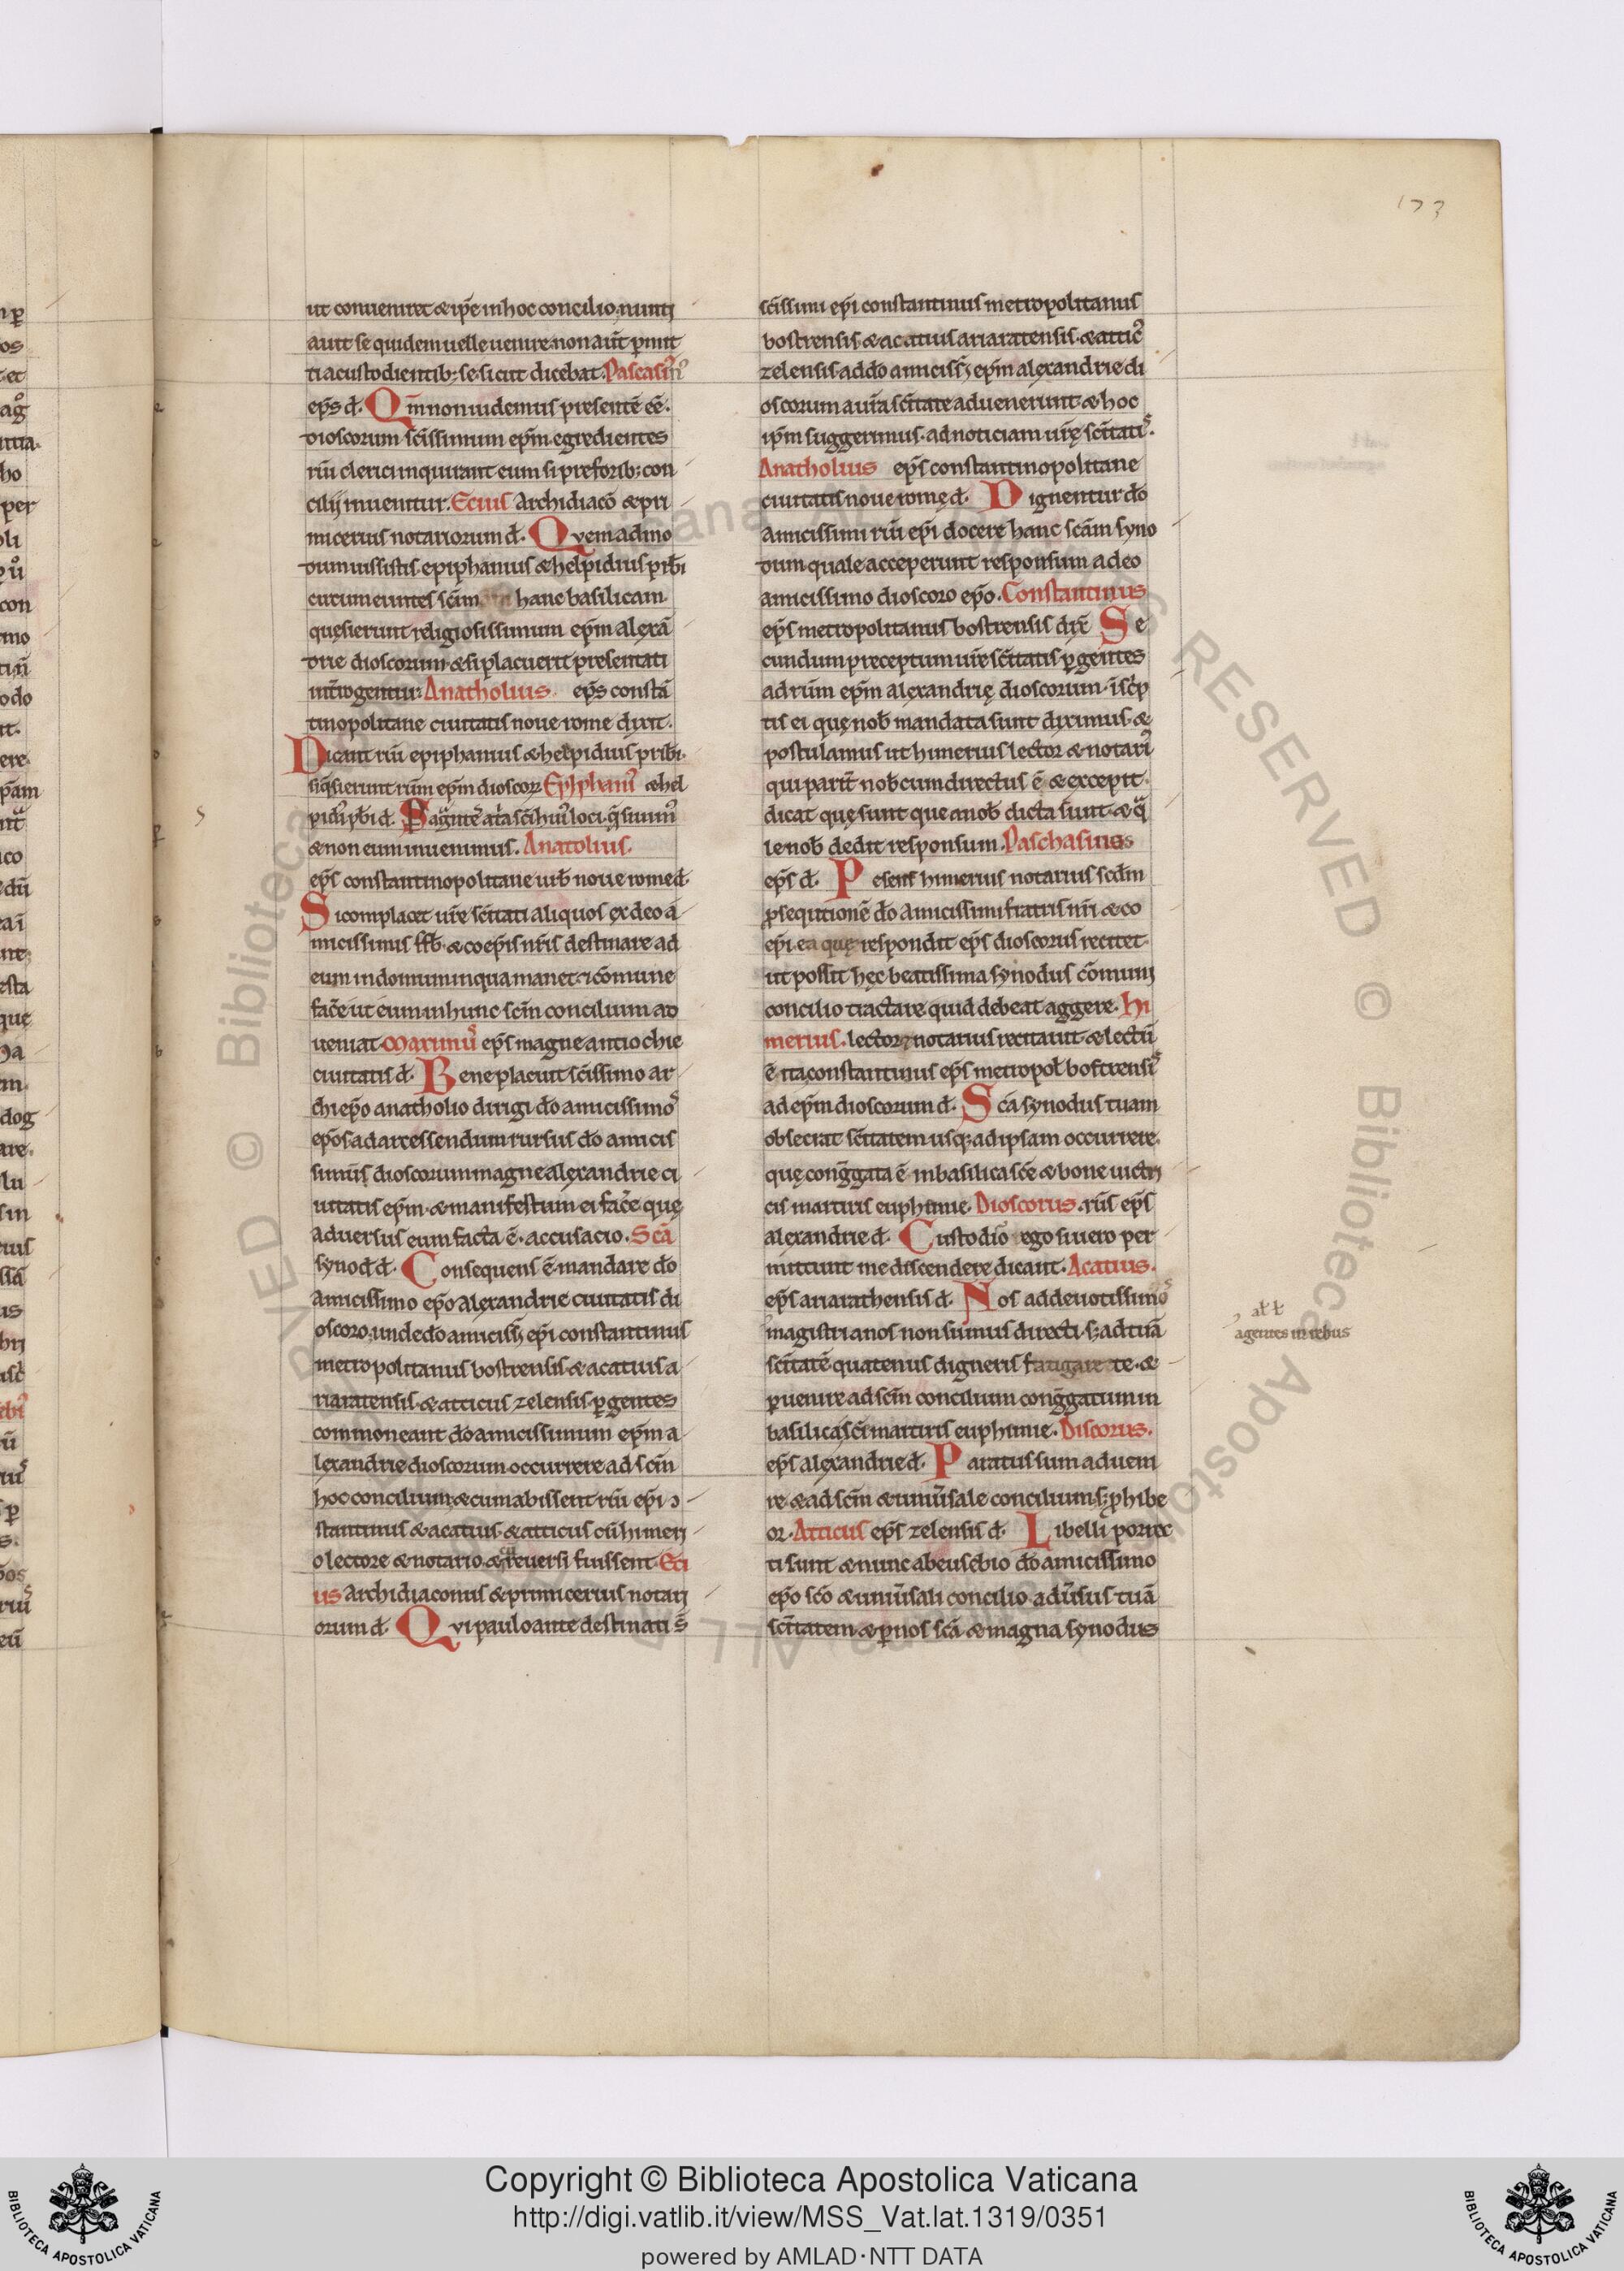 173
ut conueniret & ip̄e in hoc concilio; nuntị
aut se quidem uelle uenire. non aūt p̱mit
ti a custodientib; se sicut dicebat. Pascasin᾿
ep̄s d̄. Qm̄ non uidemus presentē eē.
dioscorum sc̄issimum ep̄m. egredientes
rūi clerici inquirant eum si pre forib; con
cilij inuenitur. Ecius Archidiacō & pri
micerius notariorum d̄. Quemadmo
dum iussistis epiphanius & helpidius pr̄bi
circumeuntes sc̄im hanc basilicam
quesierunt religiosissimum ep̄m alexā
drie dioscorum. & si placuerit presentati
int̄rogentur: Anatholius ep̄s constā
tinopolitane ciuitatis noue rome dixit.
Dicant rūi epiphanius & helpidius pr̄bi.
si q̄sierunt rūm ep̄m dioscorꝝ Epiphani᾿ & hel
& non eum inuenimus. Anatolius.
ep̄s constantinopolitane urb̄ noue rome d̄.
Si complacet ur̄e sc̄itati aliquos ex deo a
micissimis fr̄ib. & coep̄is nr̄is destinare ad
eum in domum in qua manet. & cōmune
fac̄e ut eum in hunc sc̄m concilium ad
ueniat. Maximu᾿ ep̄s magne antiochie
ciuitatis d̄. Bene placuit sc̄issimo ar
chiep̄o anatholio dirigi d̄o amicissimo᾿
ep̄os ad arcessendum rursus d̄o amicis
simūs dioscorum magne alexandrie ci
uitatis ep̄m. & manifestum ei fac̄e quę
aduersus eum facta ē. accusacio. Sc̄a
synod̄ d̄. Consequens ē. mandare d̄o
amicissimo ep̄o alexandrie ciuitatis di
oscoro; unde d̄o amiciss̄ ep̄i constantinus
metropolitanus bostrensis. & acatius a
riaratensis. & atticus zelensis. p̱gentes
commoneant d̄o amicissimum ep̄m a
lexandrie dioscorum occurrere ad sc̄m
hoc concilium; & cum abissent rūi ep̄i ɔ
stantinus & acatius. & atticus cū himeri
o lectore & notario. & cū reuersi fuissent. Eci
us archidiaconus & primicerius notari
orum d̄. Qui paulo ante destinati s̄
sc̄issimi ep̄i constantinus metropolitanus
bostrensis & acatius ariaratensis. & attic᾿
zelensis ad d̄o amiciss̄ ep̄m alexandrie di
oscorum a uīa sc̄itate aduenerunt & hoc
ip̄m suggerimus. ad noticiam ur̄ę sc̄itati᾿.
Anatholius ep̄s constantinopolitane
ciuitatis noue romę d̄. Dignentur d̄o
amicissimi rūi ep̄i docere hanc sc̄am syno
dum quale acceperunt responsum a deo
amicissimo dioscoro ep̄o. Constantinus
ep̄s metropolitanus bostrensis dix̄ Se
cundum preceptum ur̄e sc̄itatis p̱gentes
ad rūm ep̄m alexandrię dioscorum. īsc̄p
tis ei quę nob̄ mandata sunt diximus. &
postulamus ut himerius lector & notari᾿
qui parit̄ nob̄cum directus ē & excepit.
dicat quę sunt que a nob̄ dicta sunt. & q̄
le nob̄ dedit responsum. Paschasinus
ep̄s d̄. Presens himerius notarius sc̄dm
p̱sequtionē d̄o amicissimi fratris nr̄i & co
ep̄i. ea quę respondit ep̄s dioscorus recitet.
ut possit hęc beatissima synodus cōmuni
concilio tractare quid debeat aggere. Hi
merius. lector & notarius recitauit. & lectū
ē ita constantinus ep̄s metropol̄ bostrensi᾿
ad ep̄m dioscorum d̄. Sc̄a synodus tuam
obsecrat sc̄itatem usq; ad ipsam occurrere.
quę cong̃gata ē in basilica sc̄e & bone uictri
cis martiris euphimie. Dioscorus. rūs ep̄s
alexandrie d̄. Custodio᾿ ego si uero per
mittunt me discendere dicant. Acatius.
ep̄s ariarathensis d̄. Nos ad deuotissimo᾿
magistrianos non sumus directi. s; ad tuā
sc̄itatē quatenus digneris fatigare te. &
p̱uenire ad sc̄m concilium cong̃gatum in
basilica sc̄i martiris euphimie. Discorus.
ep̄s alexandrie d̄. Paratus sum adueni
re & ad sc̄m & uniūsale concilium. s; p̱hibe
or. Atticus ep̄s zelensis d̄. Libelli porrec
ti sunt & nunc ab eusebio d̄o amicissimo
ep̄o sc̄o & uniūsali concilio adūsus tuā
sc̄itatem. & p̱ nos sc̄a & magna synodus
al̄t
agentes in rebus
Copyright © Biblioteca Apostolica Vaticana
http://digi.vatlib.it/view/MSS_Vat.lat.1319/0351
powered by AMLAD·NTT DATA
BIBLIOTECA APOSTOLICA VATICANA
BIBLIOTECA APOSTOLICA VATICANA